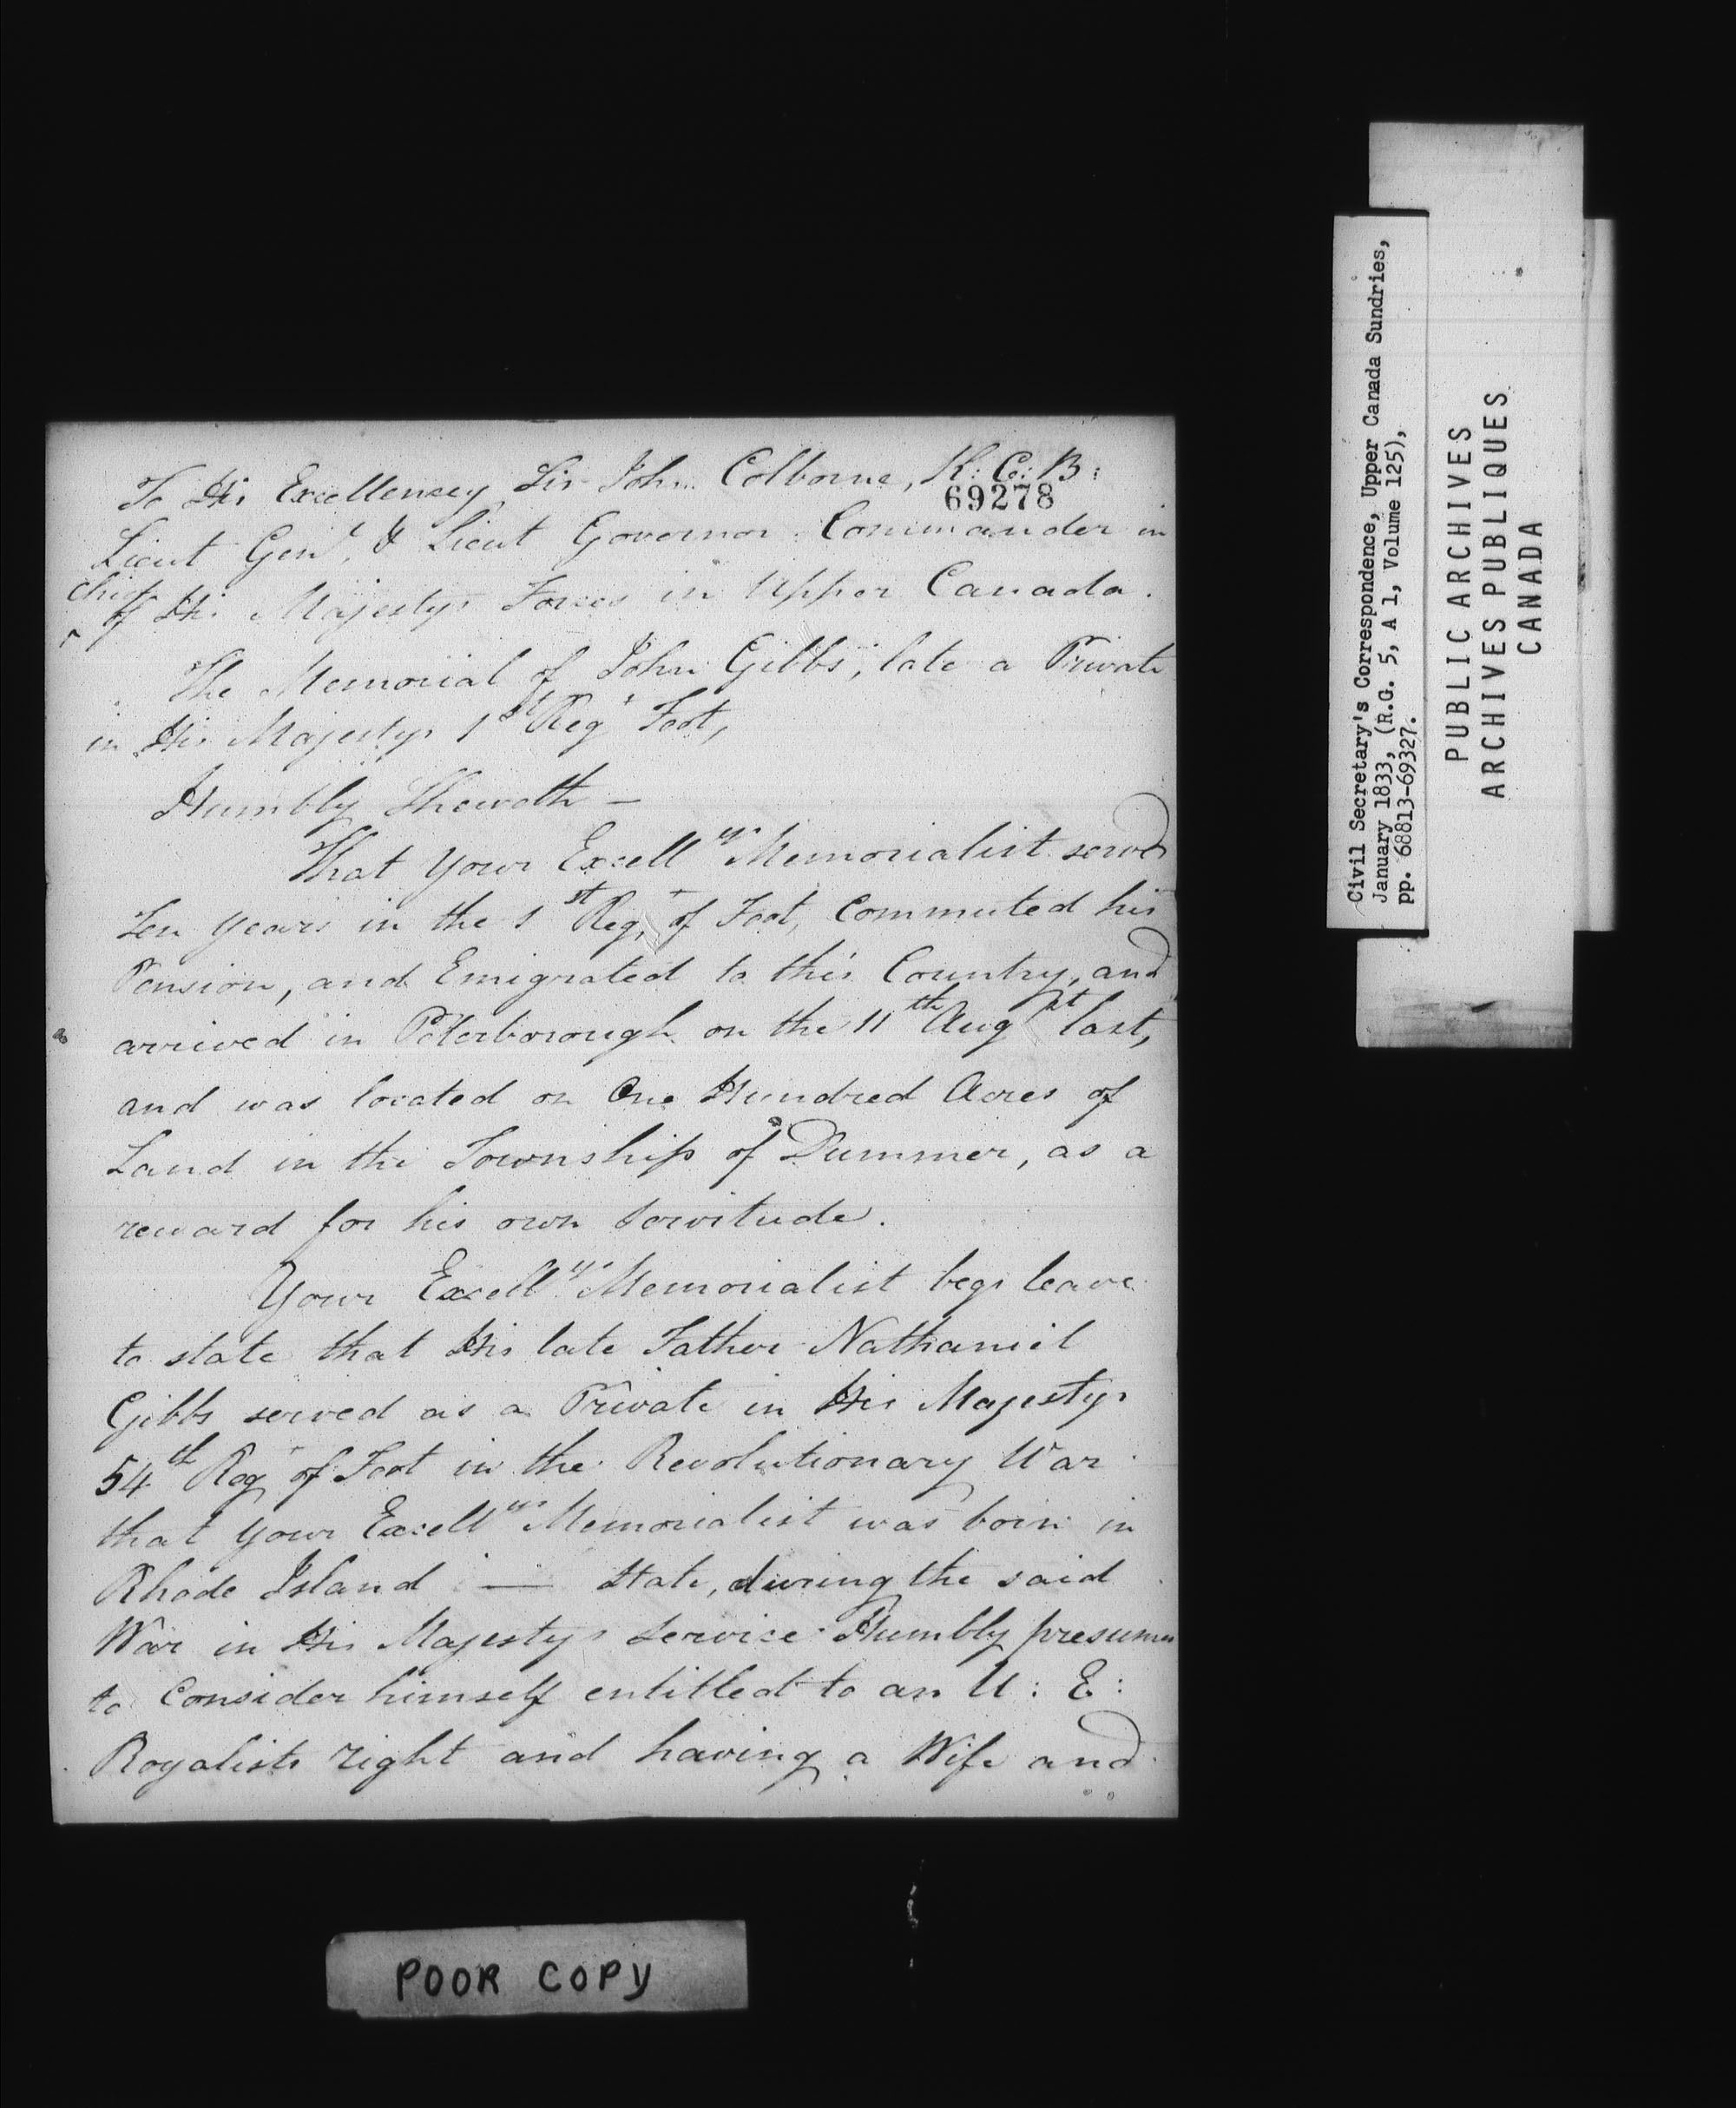 To His Excellencey Sir John Colborne, K: C: B:
69278
Lieut Genl. & Lieut Governor Commander in
chief
of His Majestys Forces in Upper Canada.
The Memorial of John Gibbs, late a Private
in His Majestys 1st Regt Foot,
Humbly Sheweth —
That your Excellys Memorialist served
Ten years in the 1st Regt of Foot, Commuted his
Pension, and Emigrated to this Country, and
arrived in Peterborough on the 11th Augst last,
and was located on One Hundred Acres of
Land in the Township of Dummer, as a
reward for his own Servitude.
Your Excellys Memorialist begs leave
to state that His late Father Nathaniel
Gibbs served as a Private in His Majestys
54th Regt of Foot in the Revolutionary War
that your Excellys Memorialist was born in
Rhode Island — State, during the said
War in His Majestys Service Humbly presumes
to Consider himself entitled to an U: E:
Royalists right and having a Wife and
POOR COPY
Civil Secretary's Correspondence, Upper Canada Sundries,
January 1833, (R.G. 5, A 1, Volume 125),
pp. 68813-69327.
PUBLIC ARCHIVES
ARCHIVES PUBLIQUES
CANADA